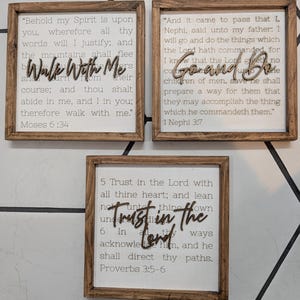 "Behold my Spirit is upon
you, wherefore all thy
words will I justify; and
the mountains shall flee
Walk With Me
course; and thou shalt
abide in me, and I in you;
therefore walk with me."
Moses 6:34
"And it came to pass that I,
Nephi, said unto my father I
will go and do the things which
the Lord hath commanded, for
I know that the Lord
Go and Do
prepare a way for them that
they may accomplish the thing
which he commandeth them."
1 Nephi 3:7
5 Trust in the Lord with
all thine heart; and lean
not thine own
Trust in the
Lord
6 In ways
acknowledge him, and he
shall direct thy paths.
Proverbs 3:5-6